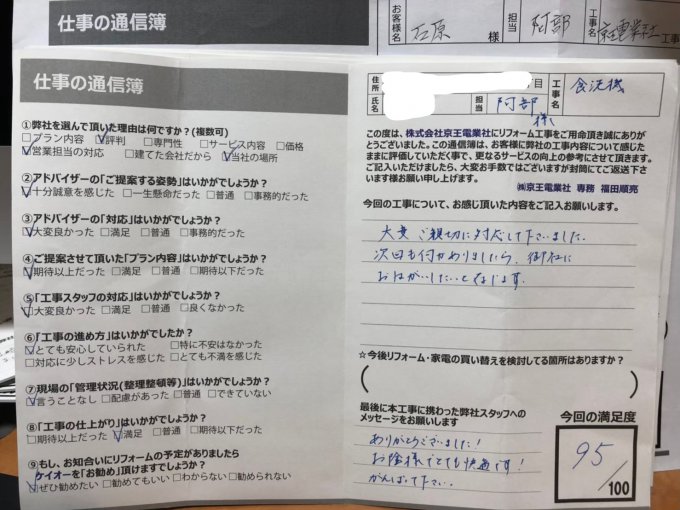 仕事の通信簿
お客様名 石原 様
担当 阿部
工事名 京電業社工事
仕事の通信簿
①弊社を選んで頂いた理由は何ですか?(複数可)
□プラン内容 ☑評判 □専門性 □サービス内容 □価格
☑営業担当の対応 □建てた会社だから ☑当社の場所
②アドバイザーの「ご提案する姿勢」はいかがでしょうか?
☑十分誠意を感じた □一生懸命だった □普通 □事務的だった
③アドバイザーの「対応」はいかがでしょうか?
☑大変良かった □満足 □普通 □事務的だった
④ご提案させて頂いた「プラン内容」はいかがでしょうか?
☑期待以上だった □満足 □普通 □期待以下だった
⑤「工事スタッフの対応」はいかがでしょうか?
☑大変良かった □満足 □普通 □良くなかった
⑥「工事の進め方」はいかがでしたか?
☑とても安心していられた □特に不安はなかった
□対応に少しストレスを感じた □とても不満を感じた
⑦現場の「管理状況(整理整頓等)」はいかがでしょうか?
☑言うことなし □配慮があった □普通 □できていない
⑧「工事の仕上がり」はいかがでしょうか?
□期待以上だった ☑満足 □普通 □期待以下だった
⑨もし、お知合いにリフォームの予定がありましたら
ケイオーを「お勧め」頂けますでしょうか?
☑ぜひ勧めたい □勧めてもいい □わからない □勧められない
住所 丁目
氏名 様
担当 阿部
工事名 食洗機
この度は、株式会社京王電業社にリフォーム工事をご用命頂き誠にあり
がとうございました。この通信簿は、お客様が弊社の工事内容について感じた
ままに評価していただく事で、更なるサービスの向上の参考にさせて頂きます。
ご記入いただけましたら、大変お手数ではございますが封筒にてご返送下さ
います様お願い申し上げます。
㈱京王電業社 専務 福田順亮
今回の工事について、お感じ頂いた内容をご記入お願いします。
大変ご親切に対応して下さいました。
次回も何かありましたら、御社に
おねがいしたいと存じます。
☆今後リフォーム・家電の買い替えを検討してる箇所はありますか?
( )
最後に本工事に携わった弊社スタッフへの
メッセージをお願いします
ありがとうございました!
お陰様でとても快適です!
がんばって下さい。
今回の満足度
95
/100